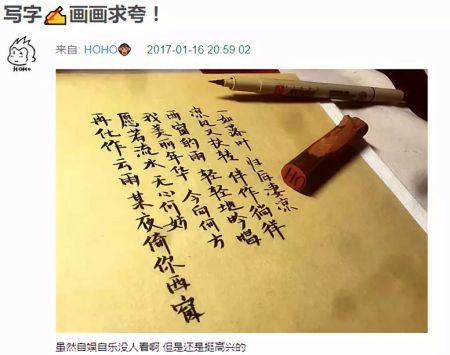 写字✍️画画求夸！
来自: HOHO🐵 2017-01-16 20:59:02
HOHO
一如落叶 归后凄凉
凉风又扶转 佯作徜徉
西窗的雨 轻轻地吟唱
我美丽年华 今向何方
愿若流水 无心何妨
再化作云雨某夜倚你西窗
HO
虽然自娱自乐没人看啊 但是还是挺高兴的